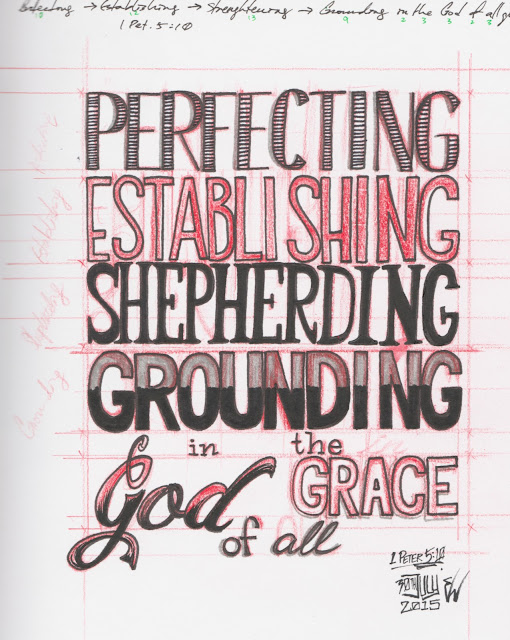 → Establishing → Strenghtening → Grounding in the God of all
1 Pet. 5:10
PERFECTING
ESTABLISHING
SHEPHERDING
GROUNDING
in the
God GRACE
of all
1 PETER 5:10
30TH JULY
2015